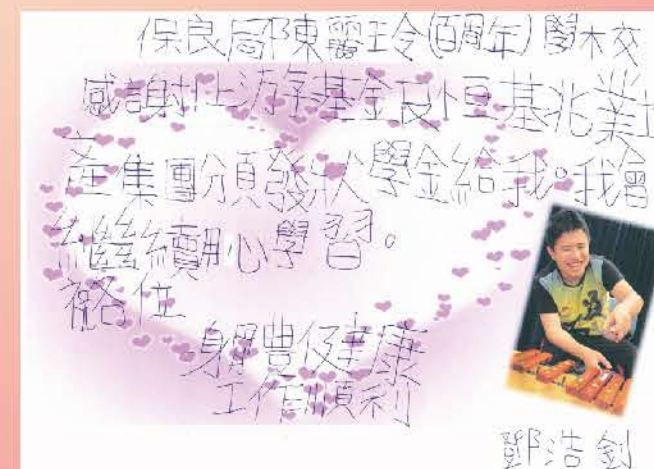 保良局陳麗玲(百周年)學校
感謝基金及恒基兆業地
產集團頒發狀學金給我。我會
繼續用心學習。
祝各位
身體健康
工作順利
鄭浩釗